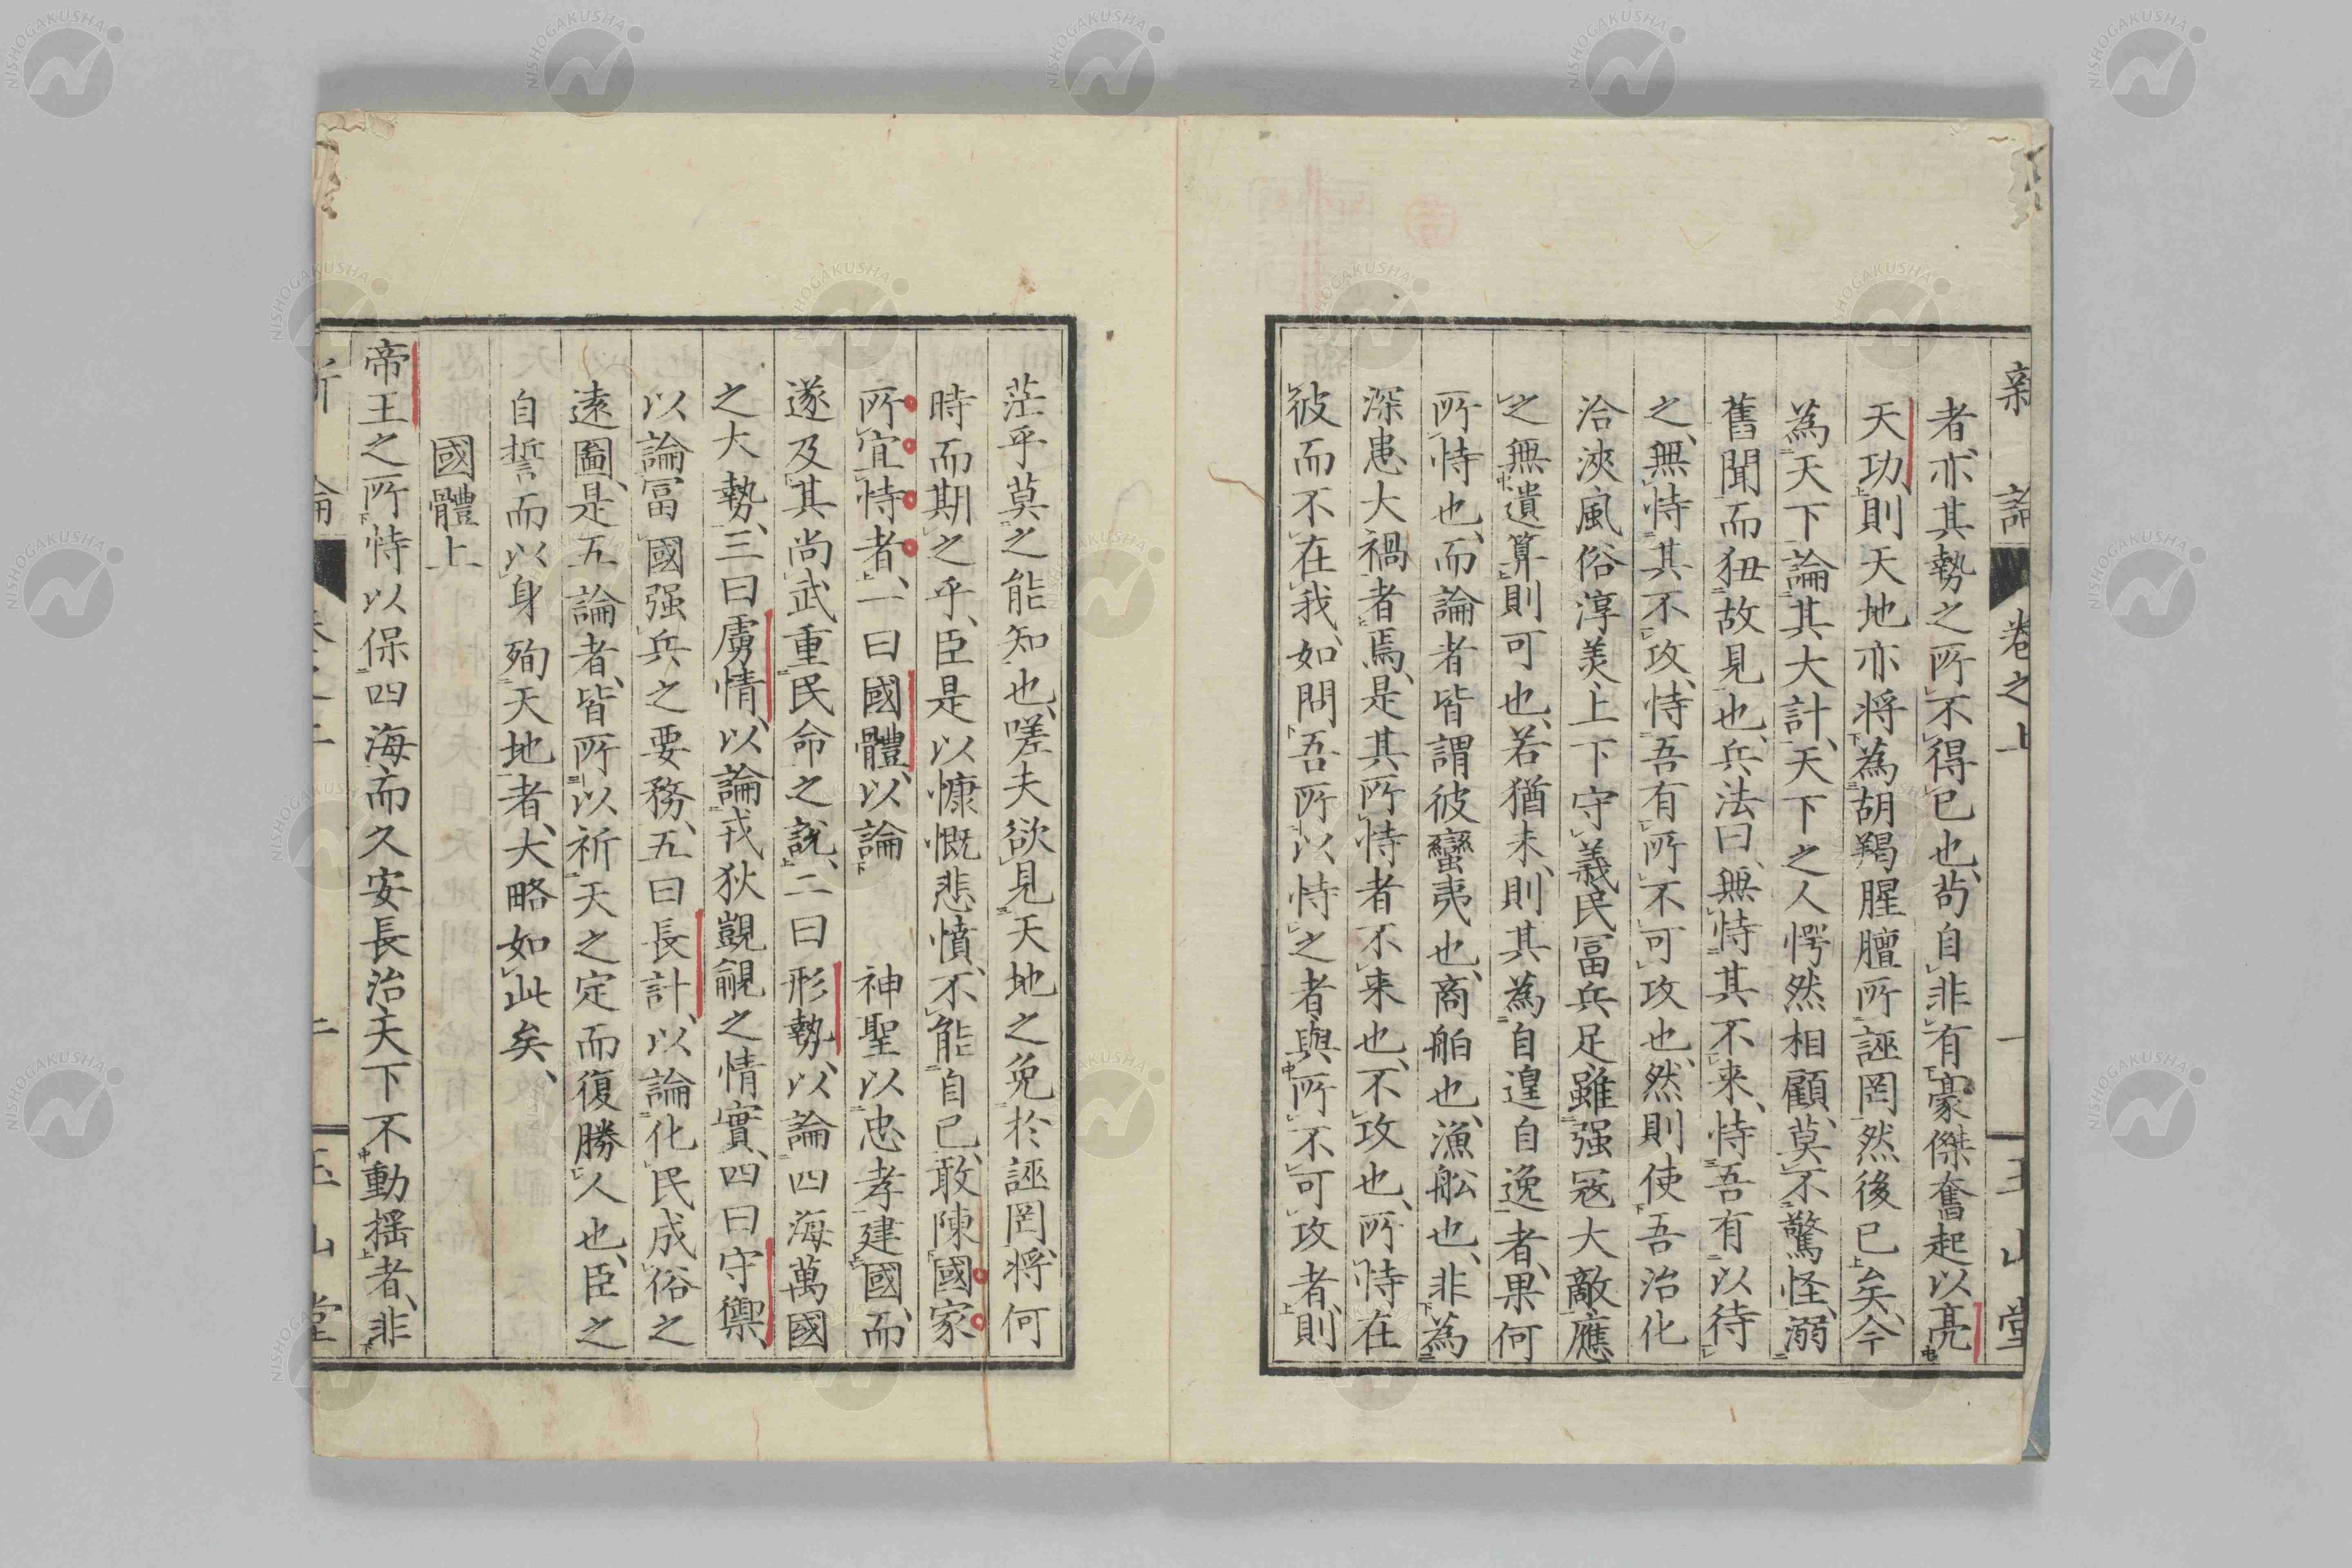 新論 卷之上 一 玉山堂
者、亦其勢之所不得已也、苟自非有豪傑奮起以亮
天功、則天地亦將為胡羯腥膻所誣罔然後已矣、今
為天下論其大計、天下之人愕然相顧、莫不驚怪、溺
舊聞而狃故見也、兵法曰、無恃其不来、恃吾有以待
之、無恃其不攻、恃吾有所不可攻也、然則使吾治化
洽浹風俗淳美上下守義民冨兵足雖强冦大敵應
之無遺算則可也、若猶未、則其為自遑自逸者、果何
所恃也、而論者皆謂彼蠻夷也、商舶也、漁舩也、非為
深患大禍者焉、是其所恃者不来也、不攻也、所恃在
彼而不在我、如問吾所以恃之者與所不可攻者、則
茫乎莫之能知也、嗟夫欲見天地之免於誣罔將何
時而期之乎、臣是以慷慨悲憤、不能自已、敢陳國家
所宜恃者、一曰國體、以論 神聖以忠孝建國、而
遂及其尚武重民命之說、二曰形勢、以論四海萬國
之大勢、三曰虜情、以論戎狄覬覦之情實、四曰守禦
以論冨國强兵之要務、五曰長計、以論化民成俗之
遠圖、是五論者、皆所以祈天之定而復勝人也、臣之
自誓而以身殉天地者、大略如此矣、
國體上
帝王之所恃以保四海、而久安長治、天下不動揺者、非